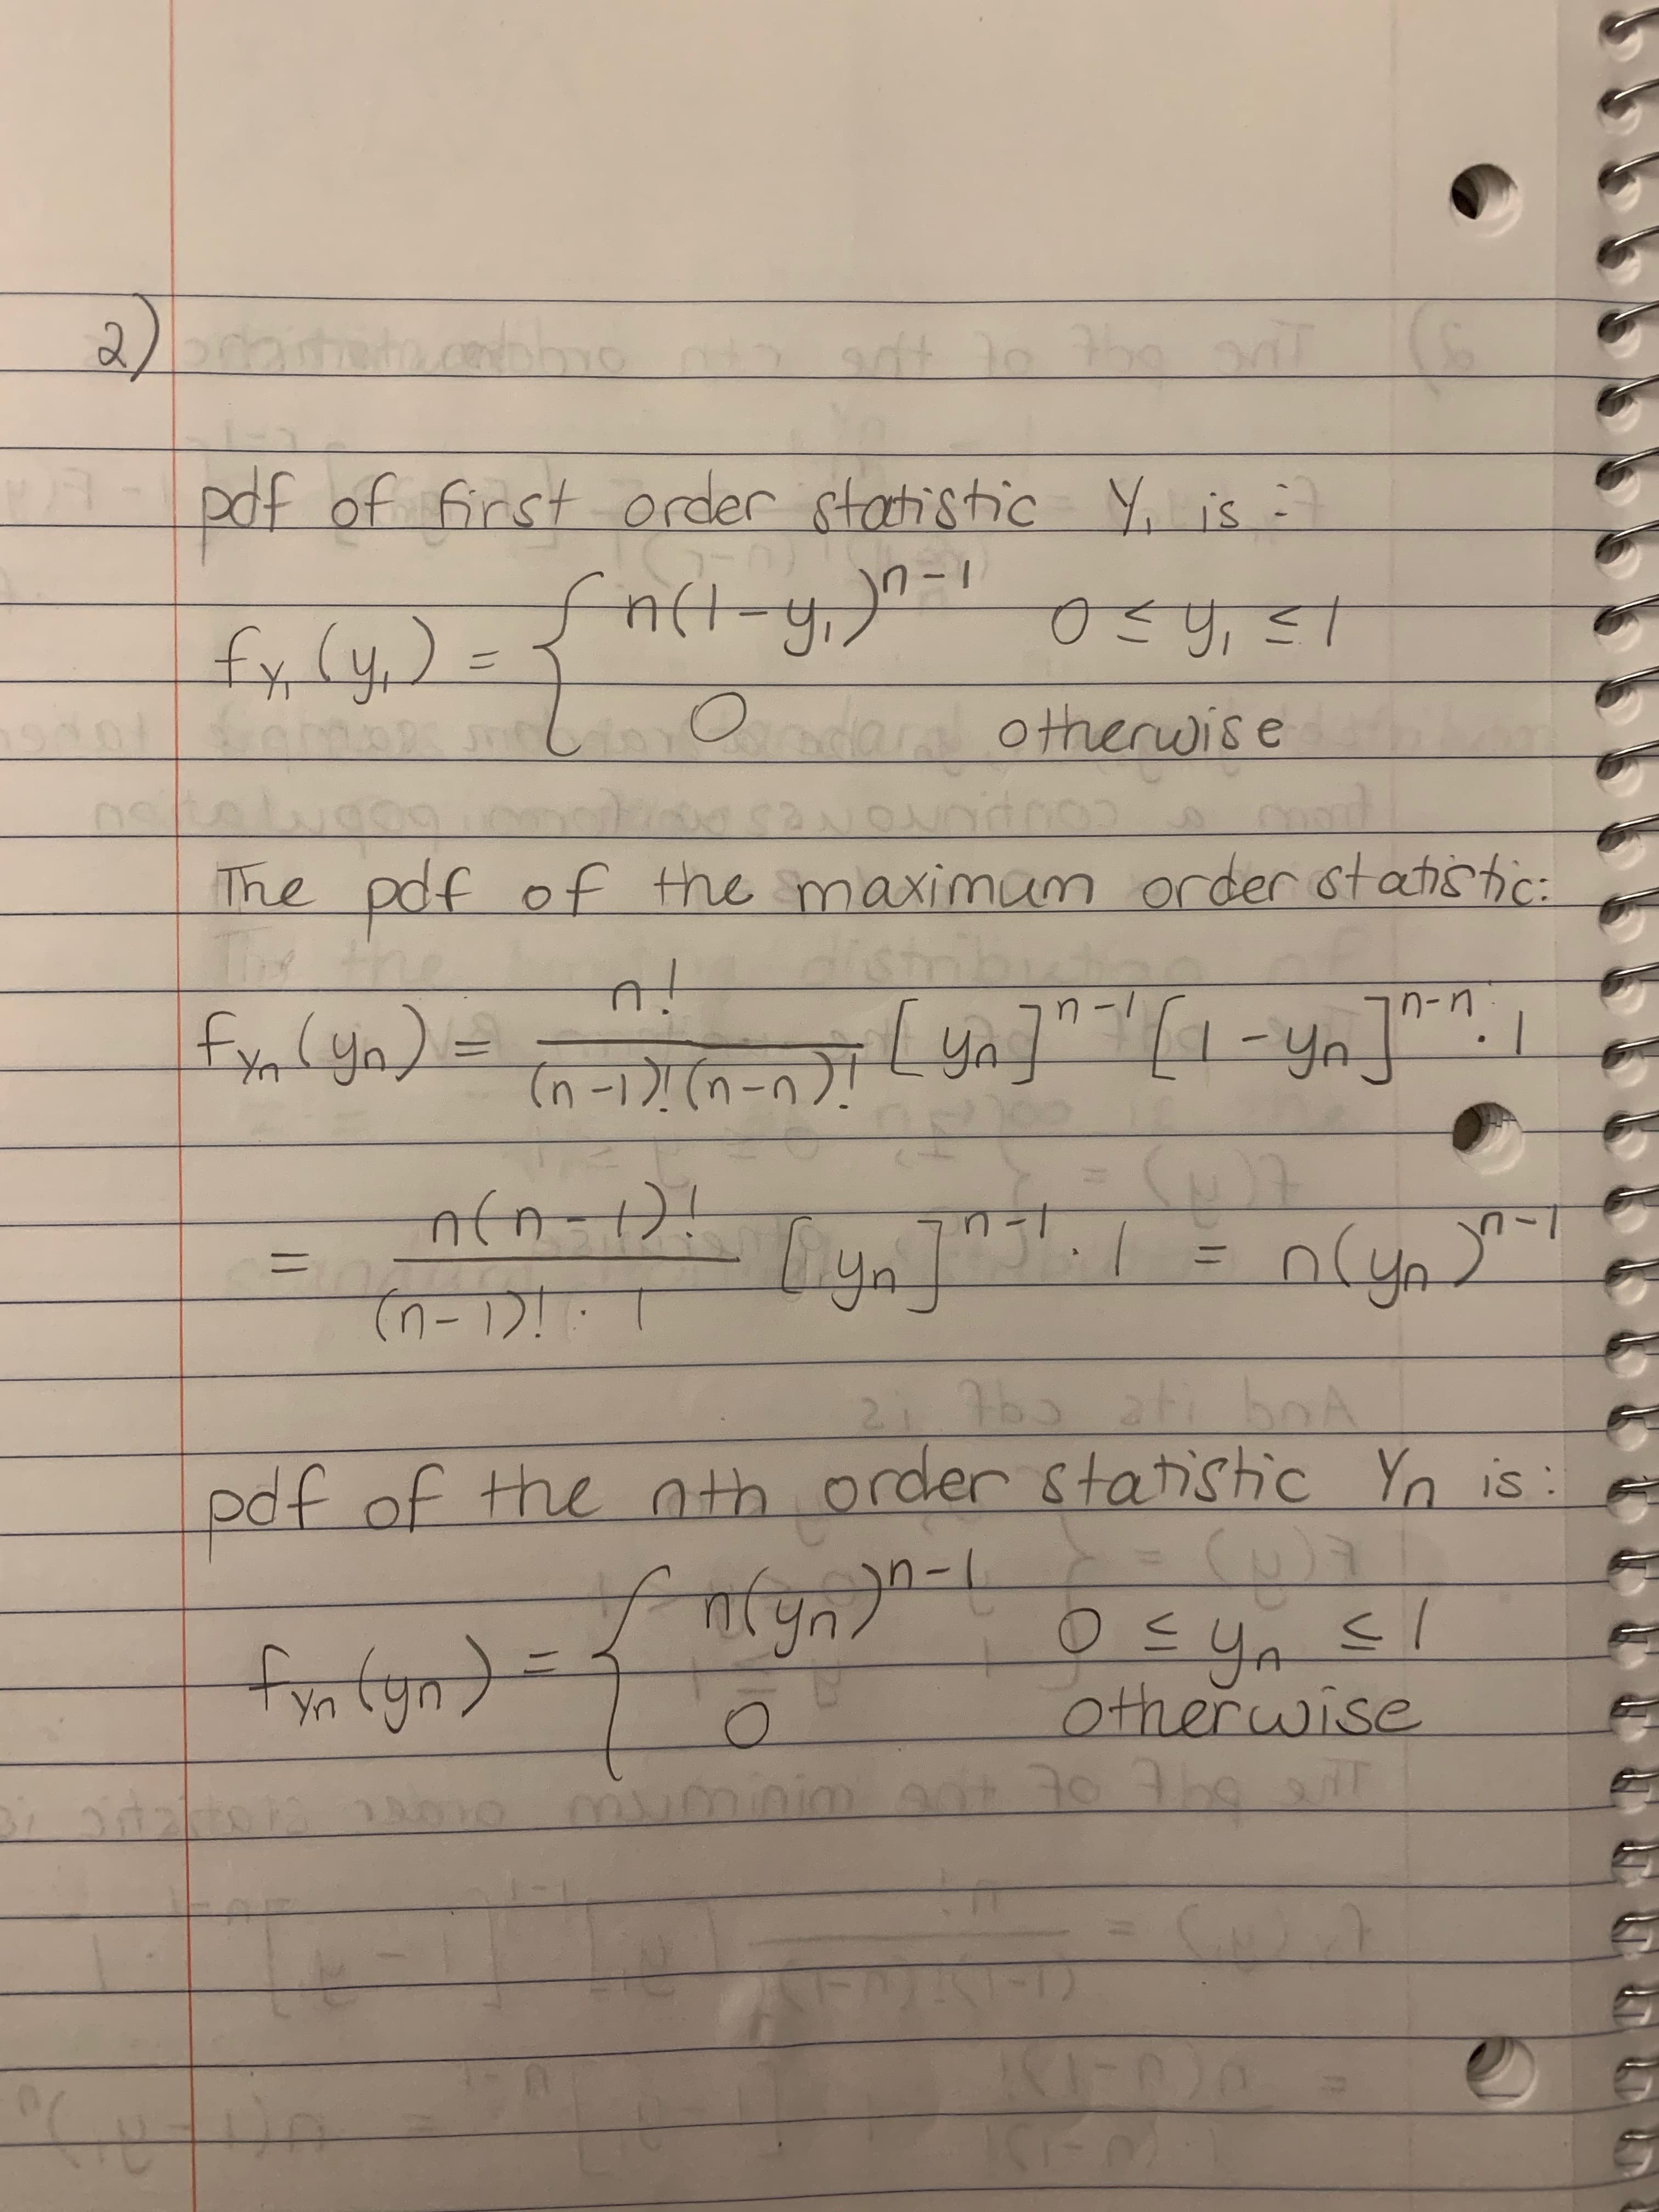 2)
pdf of first order statistic Y₁ is :
f_Y₁(y₁) = { n(1-y₁)^(n-1)   0 ≤ y₁ ≤ 1
0   otherwise
The pdf of the maximum order statistic:
f_Yn(yn) = n! / (n-1)!(n-n)! [yn]^(n-1) [1-yn]^(n-n) · 1
= n(n-1)! / (n-1)! · 1 [yn]^(n-1) · 1 = n(yn)^(n-1)
pdf of the nth order statistic Yn is:
f_Yn(yn) = { n(yn)^(n-1)   0 ≤ yn ≤ 1
0   otherwise